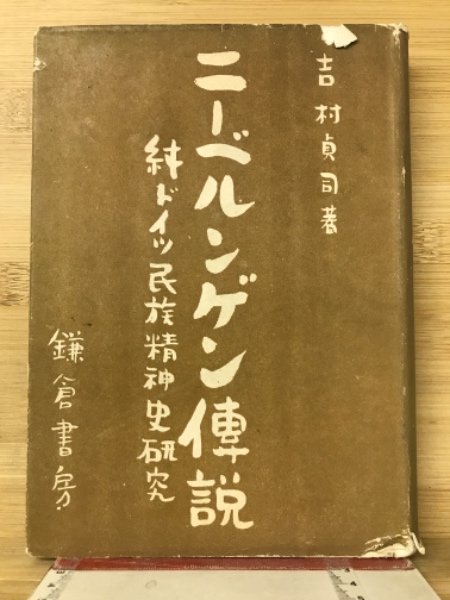 吉村貞司著
ニーベルンゲン傳説
純ドイツ民族精神史研究
鎌倉書房